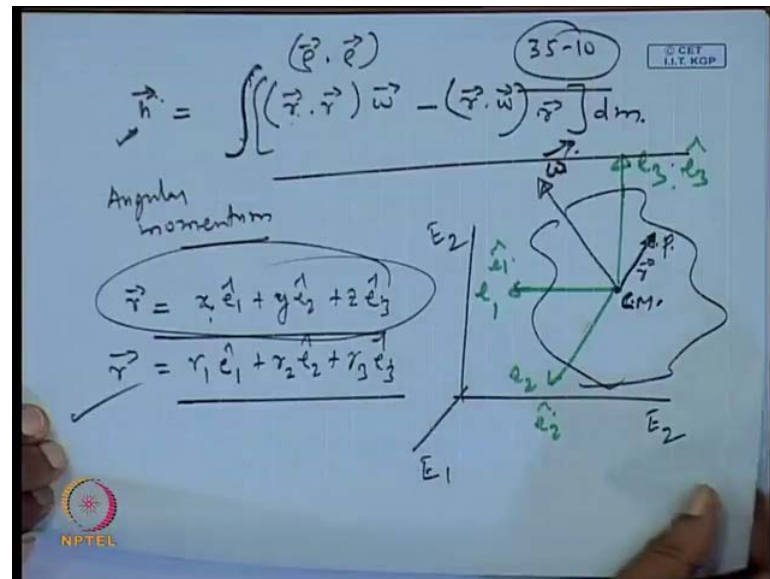 (ρ⃗ . ρ⃗)
35-10
© CET
I.I.T. KGP
h⃗ = ∫[(r⃗ . r⃗) ω⃗ - (r⃗ . ω⃗) r⃗] dm.
Angular
momentum
r⃗ = x ê1 + y ê2 + z ê3
r⃗ = r1 ê1 + r2 ê2 + r3 ê3
ω⃗
e3, ê3
E2
P.
r⃗
ê1
e1
C.M.
e2
ê2
E2
E1
NPTEL